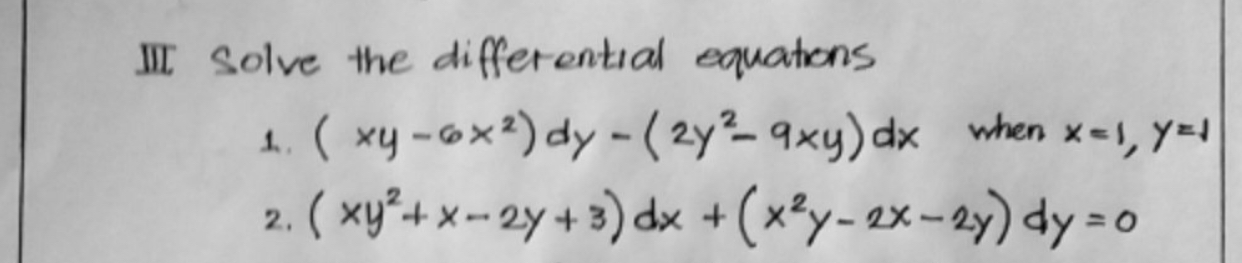 III Solve the differential equations
1. ( xy - 6x²) dy - ( 2y² - 9xy) dx when x = 1, y = 1
2. ( xy² + x - 2y + 3) dx + ( x²y - 2x - 2y) dy = 0